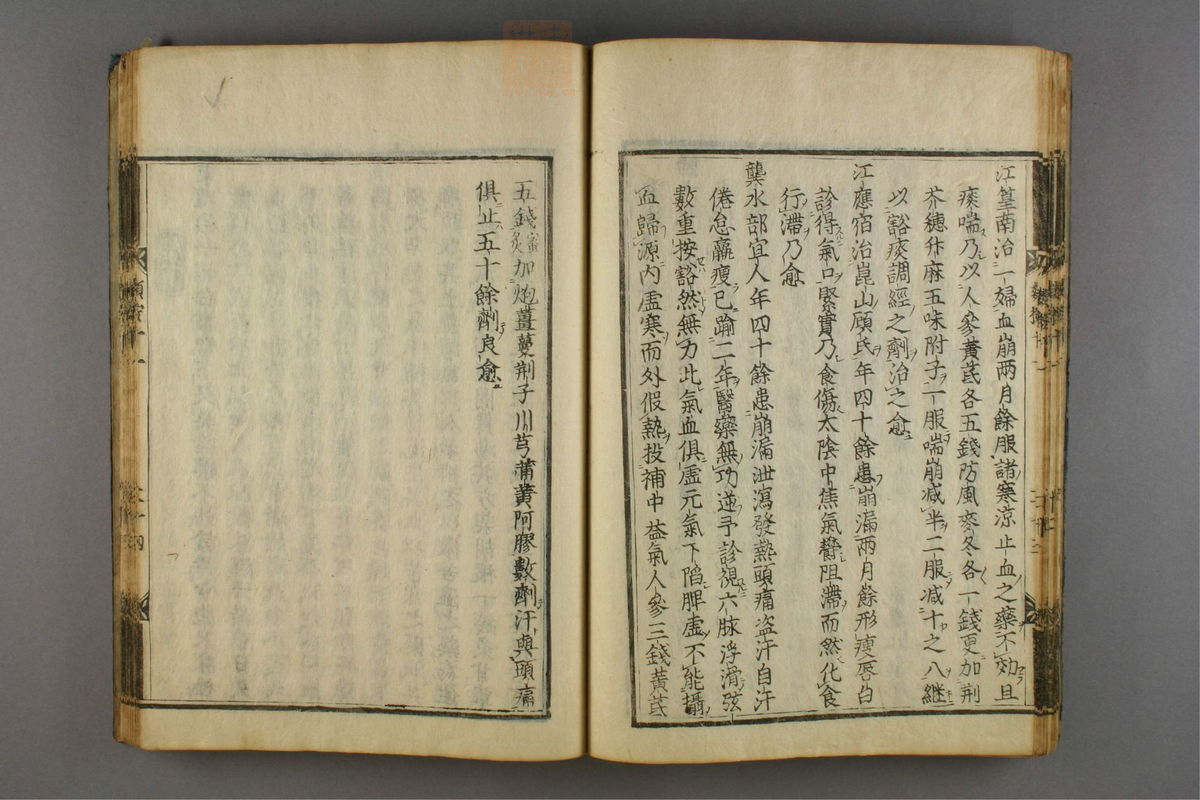 江篁南治一婦血崩兩月餘服諸寒凉止血之藥不効且
痰喘乃以人參黄芪各五錢防風麥冬各一錢更加荆
芥穂升麻五味附子一服喘崩减半二服减十之八継
以豁痰調經之劑治之愈
江應宿治崑山顧氏年四十餘患崩漏兩月餘形瘦唇白
診得氣口緊實乃食傷太陰中焦氣欝阻滯而然化食
行滯乃愈
龔水部宜人年四十餘患崩漏泄瀉發熱頭痛盗汗自汗
倦怠羸瘦已踰二年醫藥無功逆予診視六脉浮滑弦
數重按豁然無力此氣血俱虚元氣下陷脾虚不能攝
血歸源内虚寒而外假熱投補中益氣人參三錢黄芪
五錢蜜炙加炮薑蔓荆子川芎蒲黄阿膠數劑汗與頭痛
俱止五十餘劑良愈